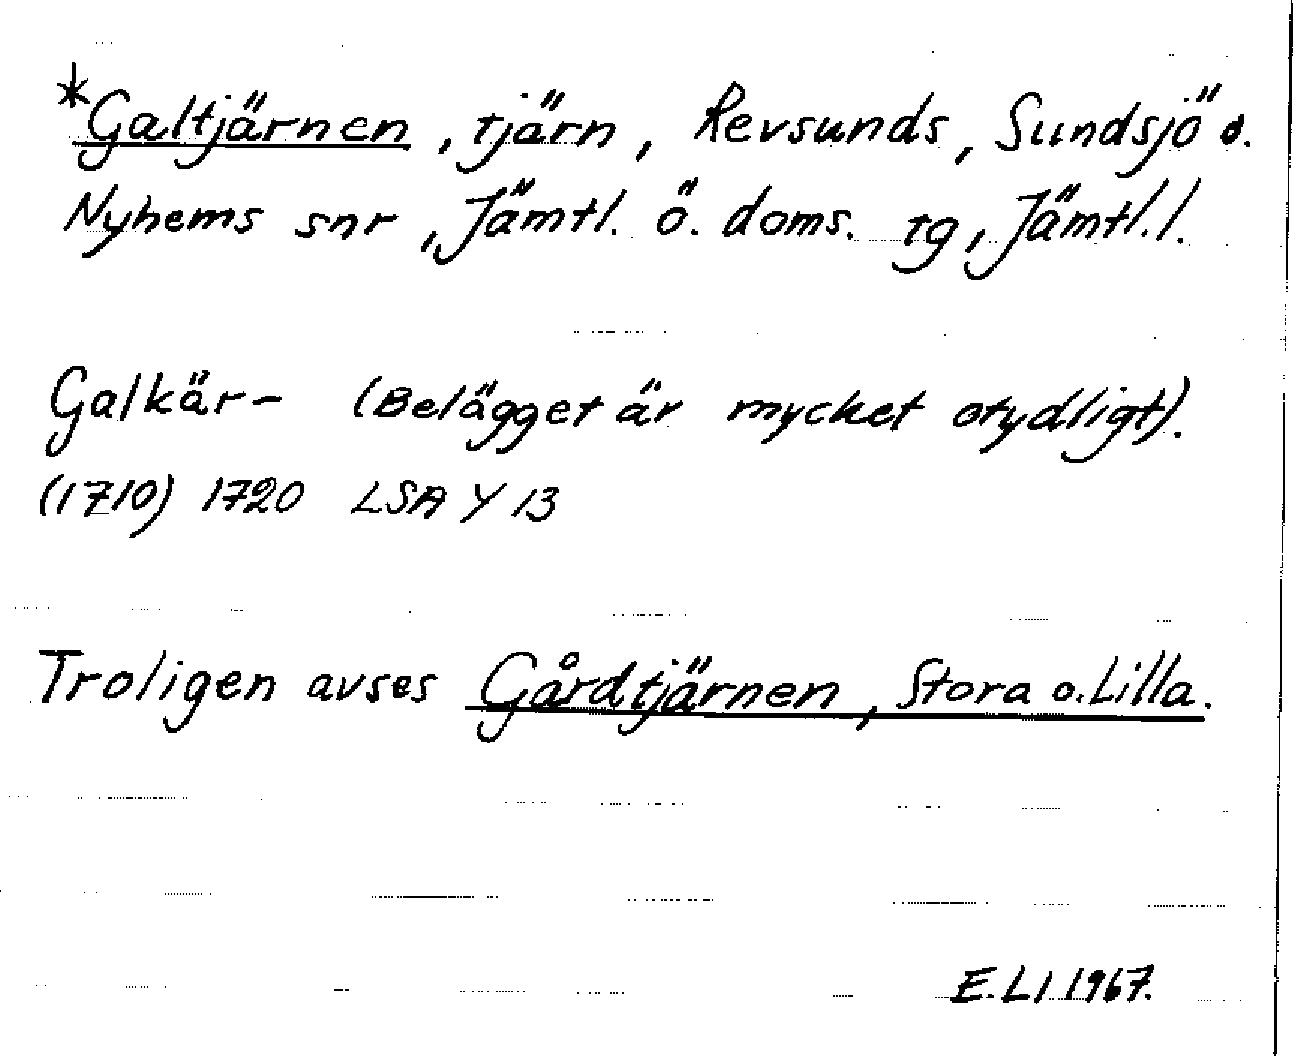 *Galtjärnen, tjärn, Revsunds, Sundsjö o.
Nyhems snr, Jämtl. ö. doms. tg, Jämtl. l.
Galkär- (Belägget är mycket otydligt).
(1710) 1720 LSA Y 13
Troligen avses Gårdtjärnen, Stora o. Lilla.
E. LI 1967.